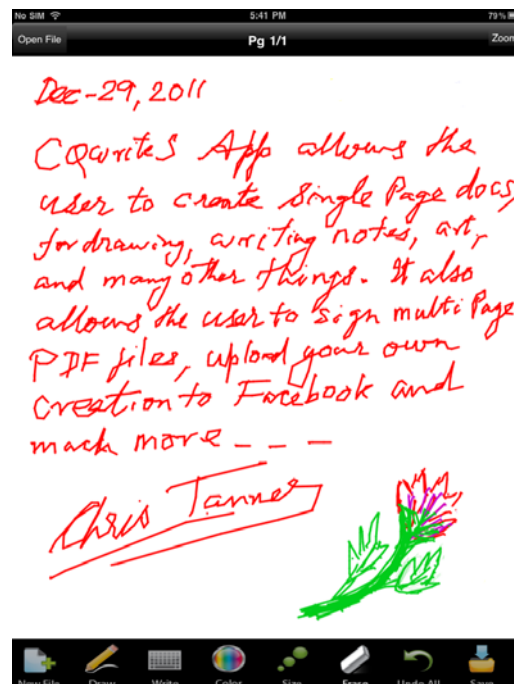 No SIM 5:41 PM 79%
Open File Pg 1/1 Zoom
Dec-29, 2011
CQwrites App allows the
user to create Single Page docs,
for drawing, writing notes, art,
and many other things. It also
allows the user to sign multi Page
PDF files, upload your own
creation to Facebook and
much more _ _ _
Chris Tanner
New File Draw Write Color Size Erase Undo All Save